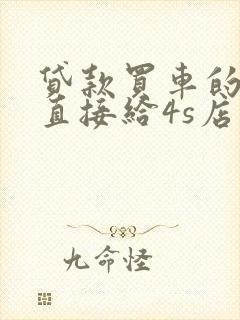 贷款買車的
直接給4s店
九命怪